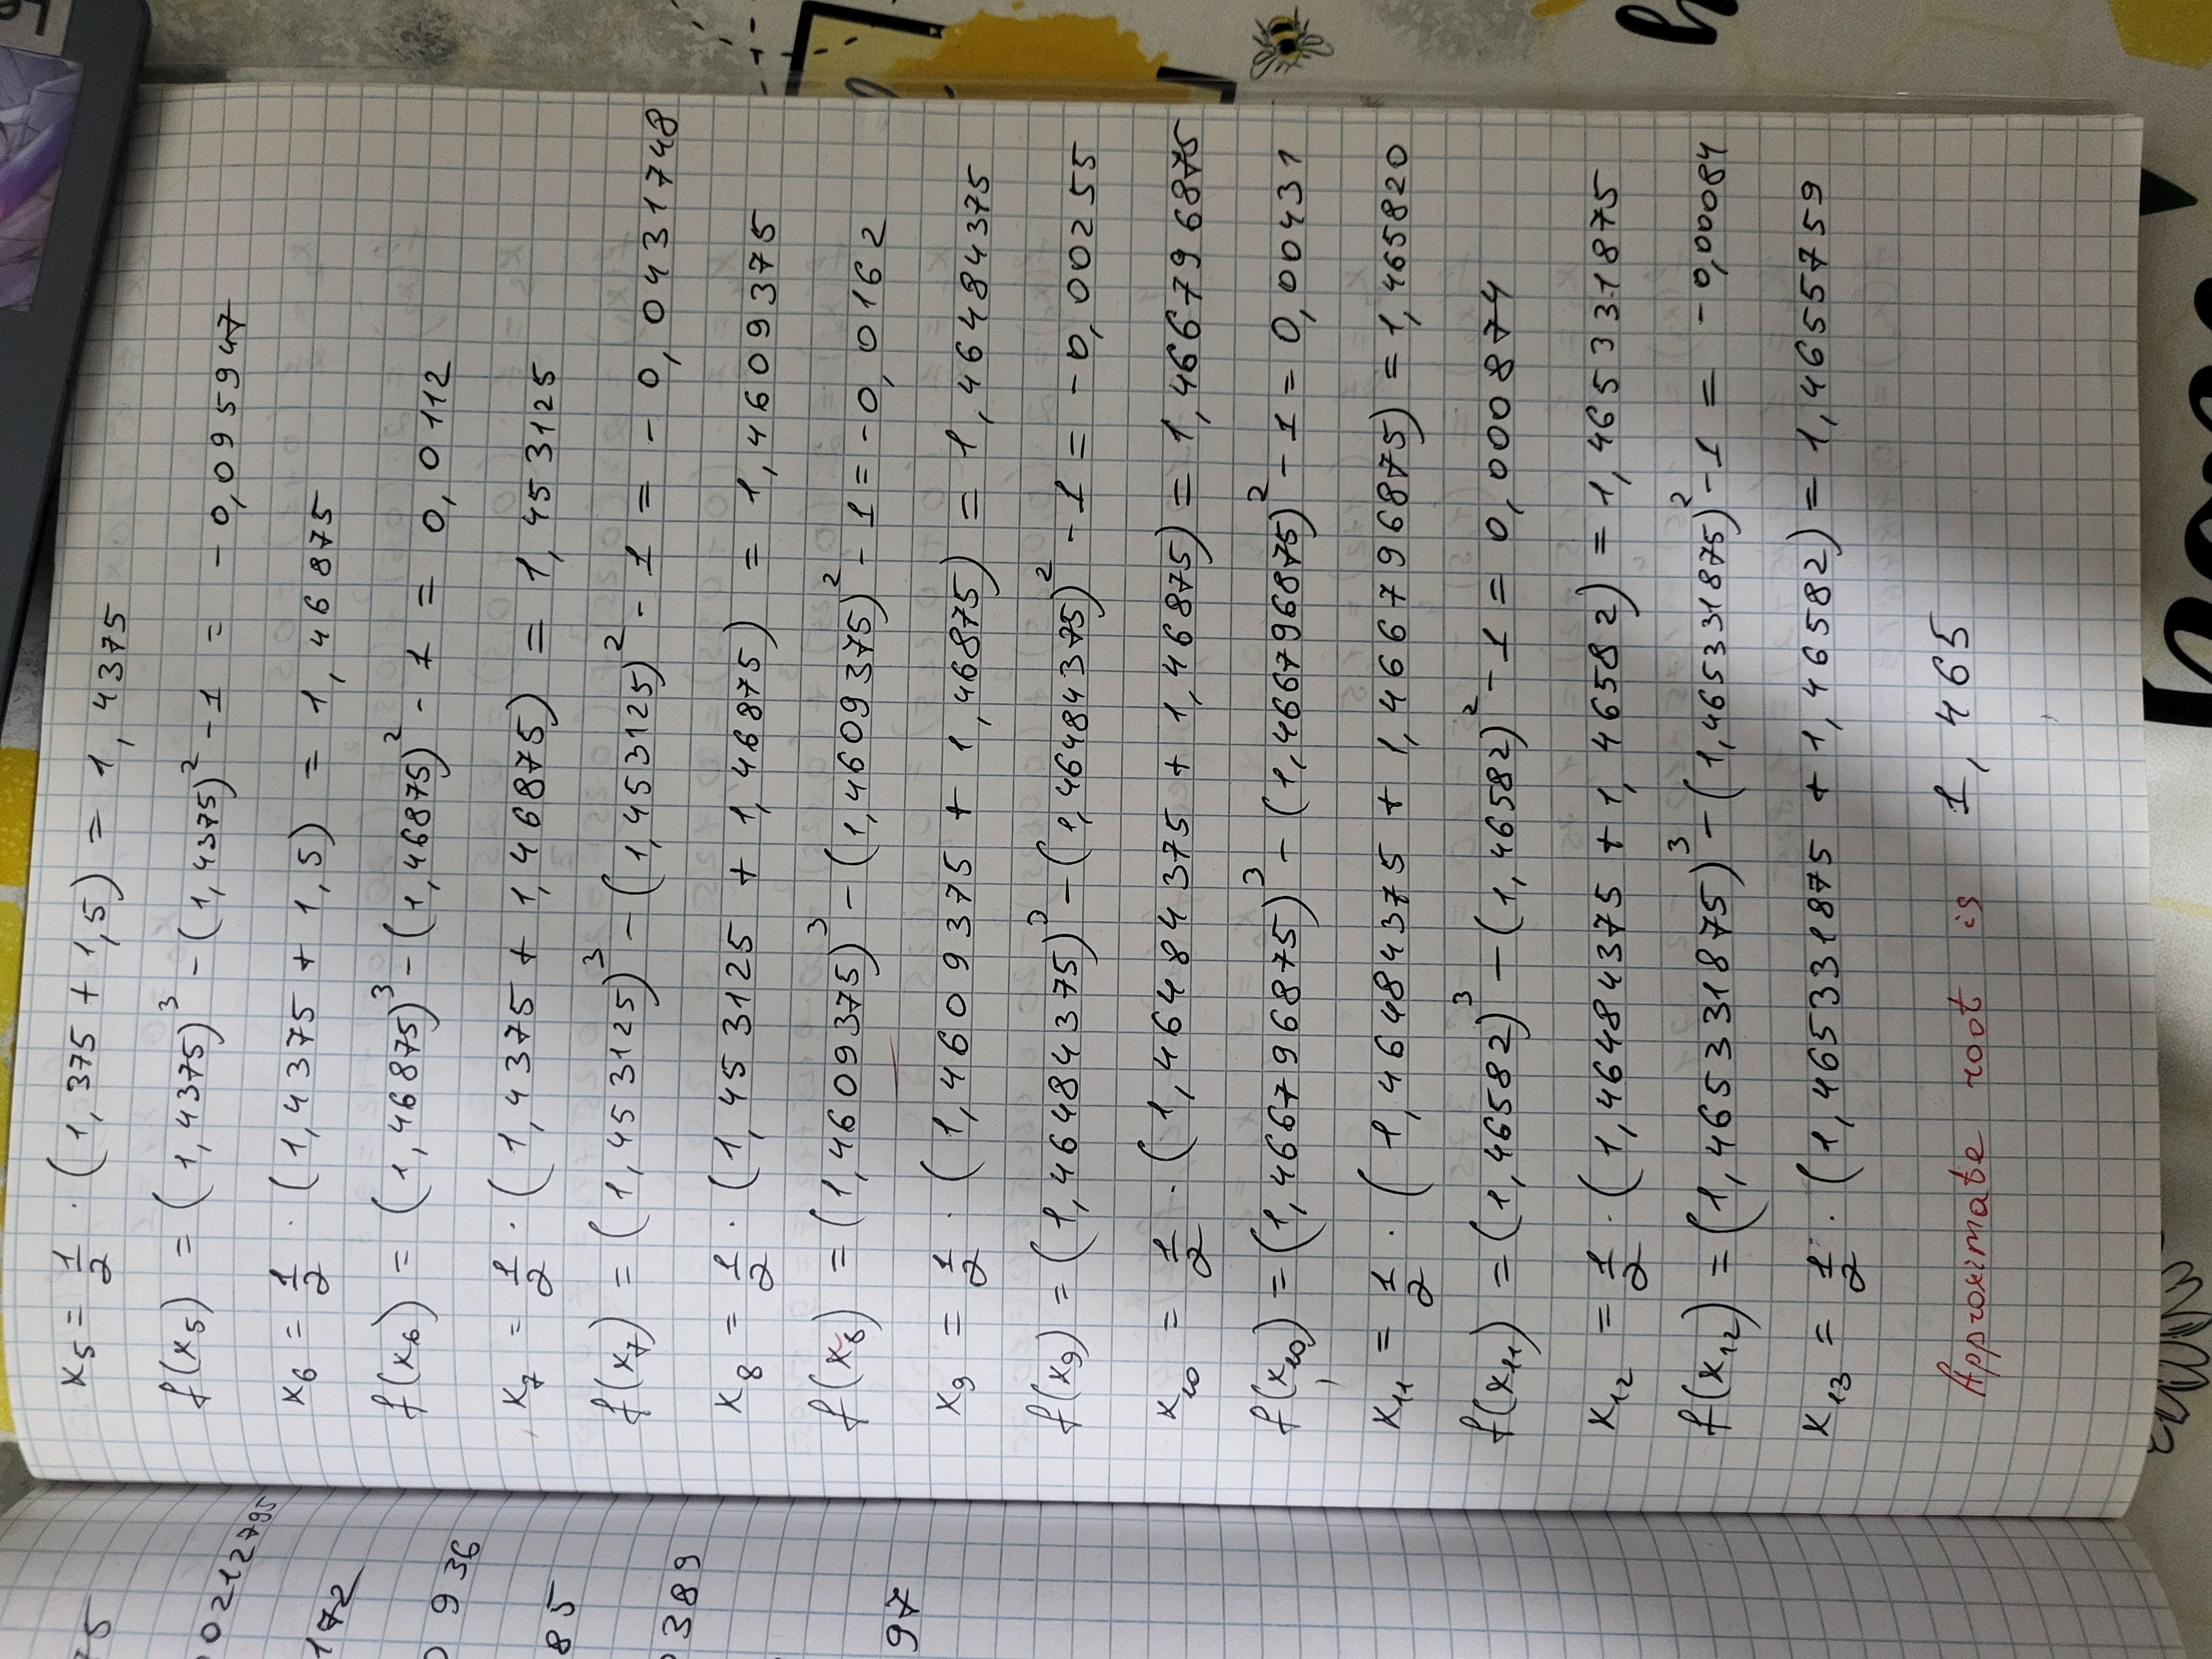 75
00212795
172
0 936
85
0389
97
x₅ = 1/2 · (1,375 + 1,5) = 1,4375
f(x₅) = (1,4375)³ - (1,4375)² - 1 = -0,095947
x₆ = 1/2 · (1,4375 + 1,5) = 1,46875
f(x₆) = (1,46875)³ - (1,46875)² - 1 = 0,0112
x₇ = 1/2 · (1,4375 + 1,46875) = 1,453125
f(x₇) = (1,453125)³ - (1,453125)² - 1 = -0,0431748
x₈ = 1/2 · (1,453125 + 1,46875) = 1,4609375
f(x₈) = (1,4609375)³ - (1,4609375)² - 1 = -0,0162
x₉ = 1/2 · (1,4609375 + 1,46875) = 1,46484375
f(x₉) = (1,46484375)³ - (1,46484375)² - 1 = -0,00255
x₁₀ = 1/2 · (1,46484375 + 1,46875) = 1,466796875
f(x₁₀) = (1,466796875)³ - (1,466796875)² - 1 = 0,00431
x₁₁ = 1/2 · (1,46484375 + 1,466796875) = 1,465820
f(x₁₁) = (1,46582)³ - (1,46582)² - 1 = 0,000874
x₁₂ = 1/2 · (1,46484375 + 1,46582) = 1,465331875
f(x₁₂) = (1,465331875)³ - (1,465331875)² - 1 = -0,00084
x₁₃ = 1/2 · (1,465331875 + 1,46582) = 1,4655759
Approximate root is 1,465